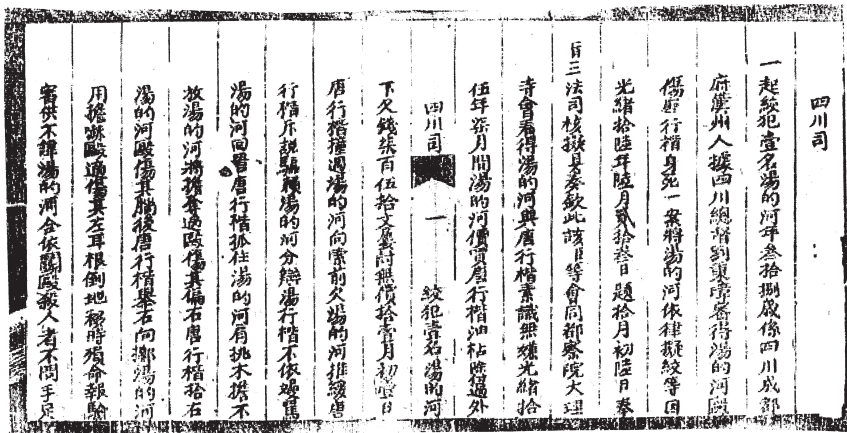 四川司
一起絞犯壹名湯的河年叁拾捌歲係四川成都
府漢州人據四川總督劉秉璋審得湯的河毆
傷唐行楷身死一案將湯的河依律擬絞等因
光緒拾陸年陸月貳拾叁日題拾月初陸日奉
旨三法司核擬具奏欽此該臣等會同都察院大理
寺會看得湯的河與唐行楷素識無嫌光緒拾
伍年柒月間湯的河價買唐行楷油枯除過外
四川司 一 絞犯壹名湯的河
下欠錢柒百伍拾文屢討無償拾壹月初壹日
唐行楷撞遇湯的河向索前欠湯的河推緩唐
行楷斥說騙賴湯的河分辯唐行楷不依嚷罵
湯的河回詈唐行楷抓住湯的河肩挑木擔不
放湯的河將擔奪過毆傷其偏右唐行楷拾石
湯的河毆傷其腦後唐行楷舉石向擲湯的河
用擔嚇毆適傷其左耳根倒地移時殞命報驗
審供不諱湯的河合依鬭毆殺人者不問手足